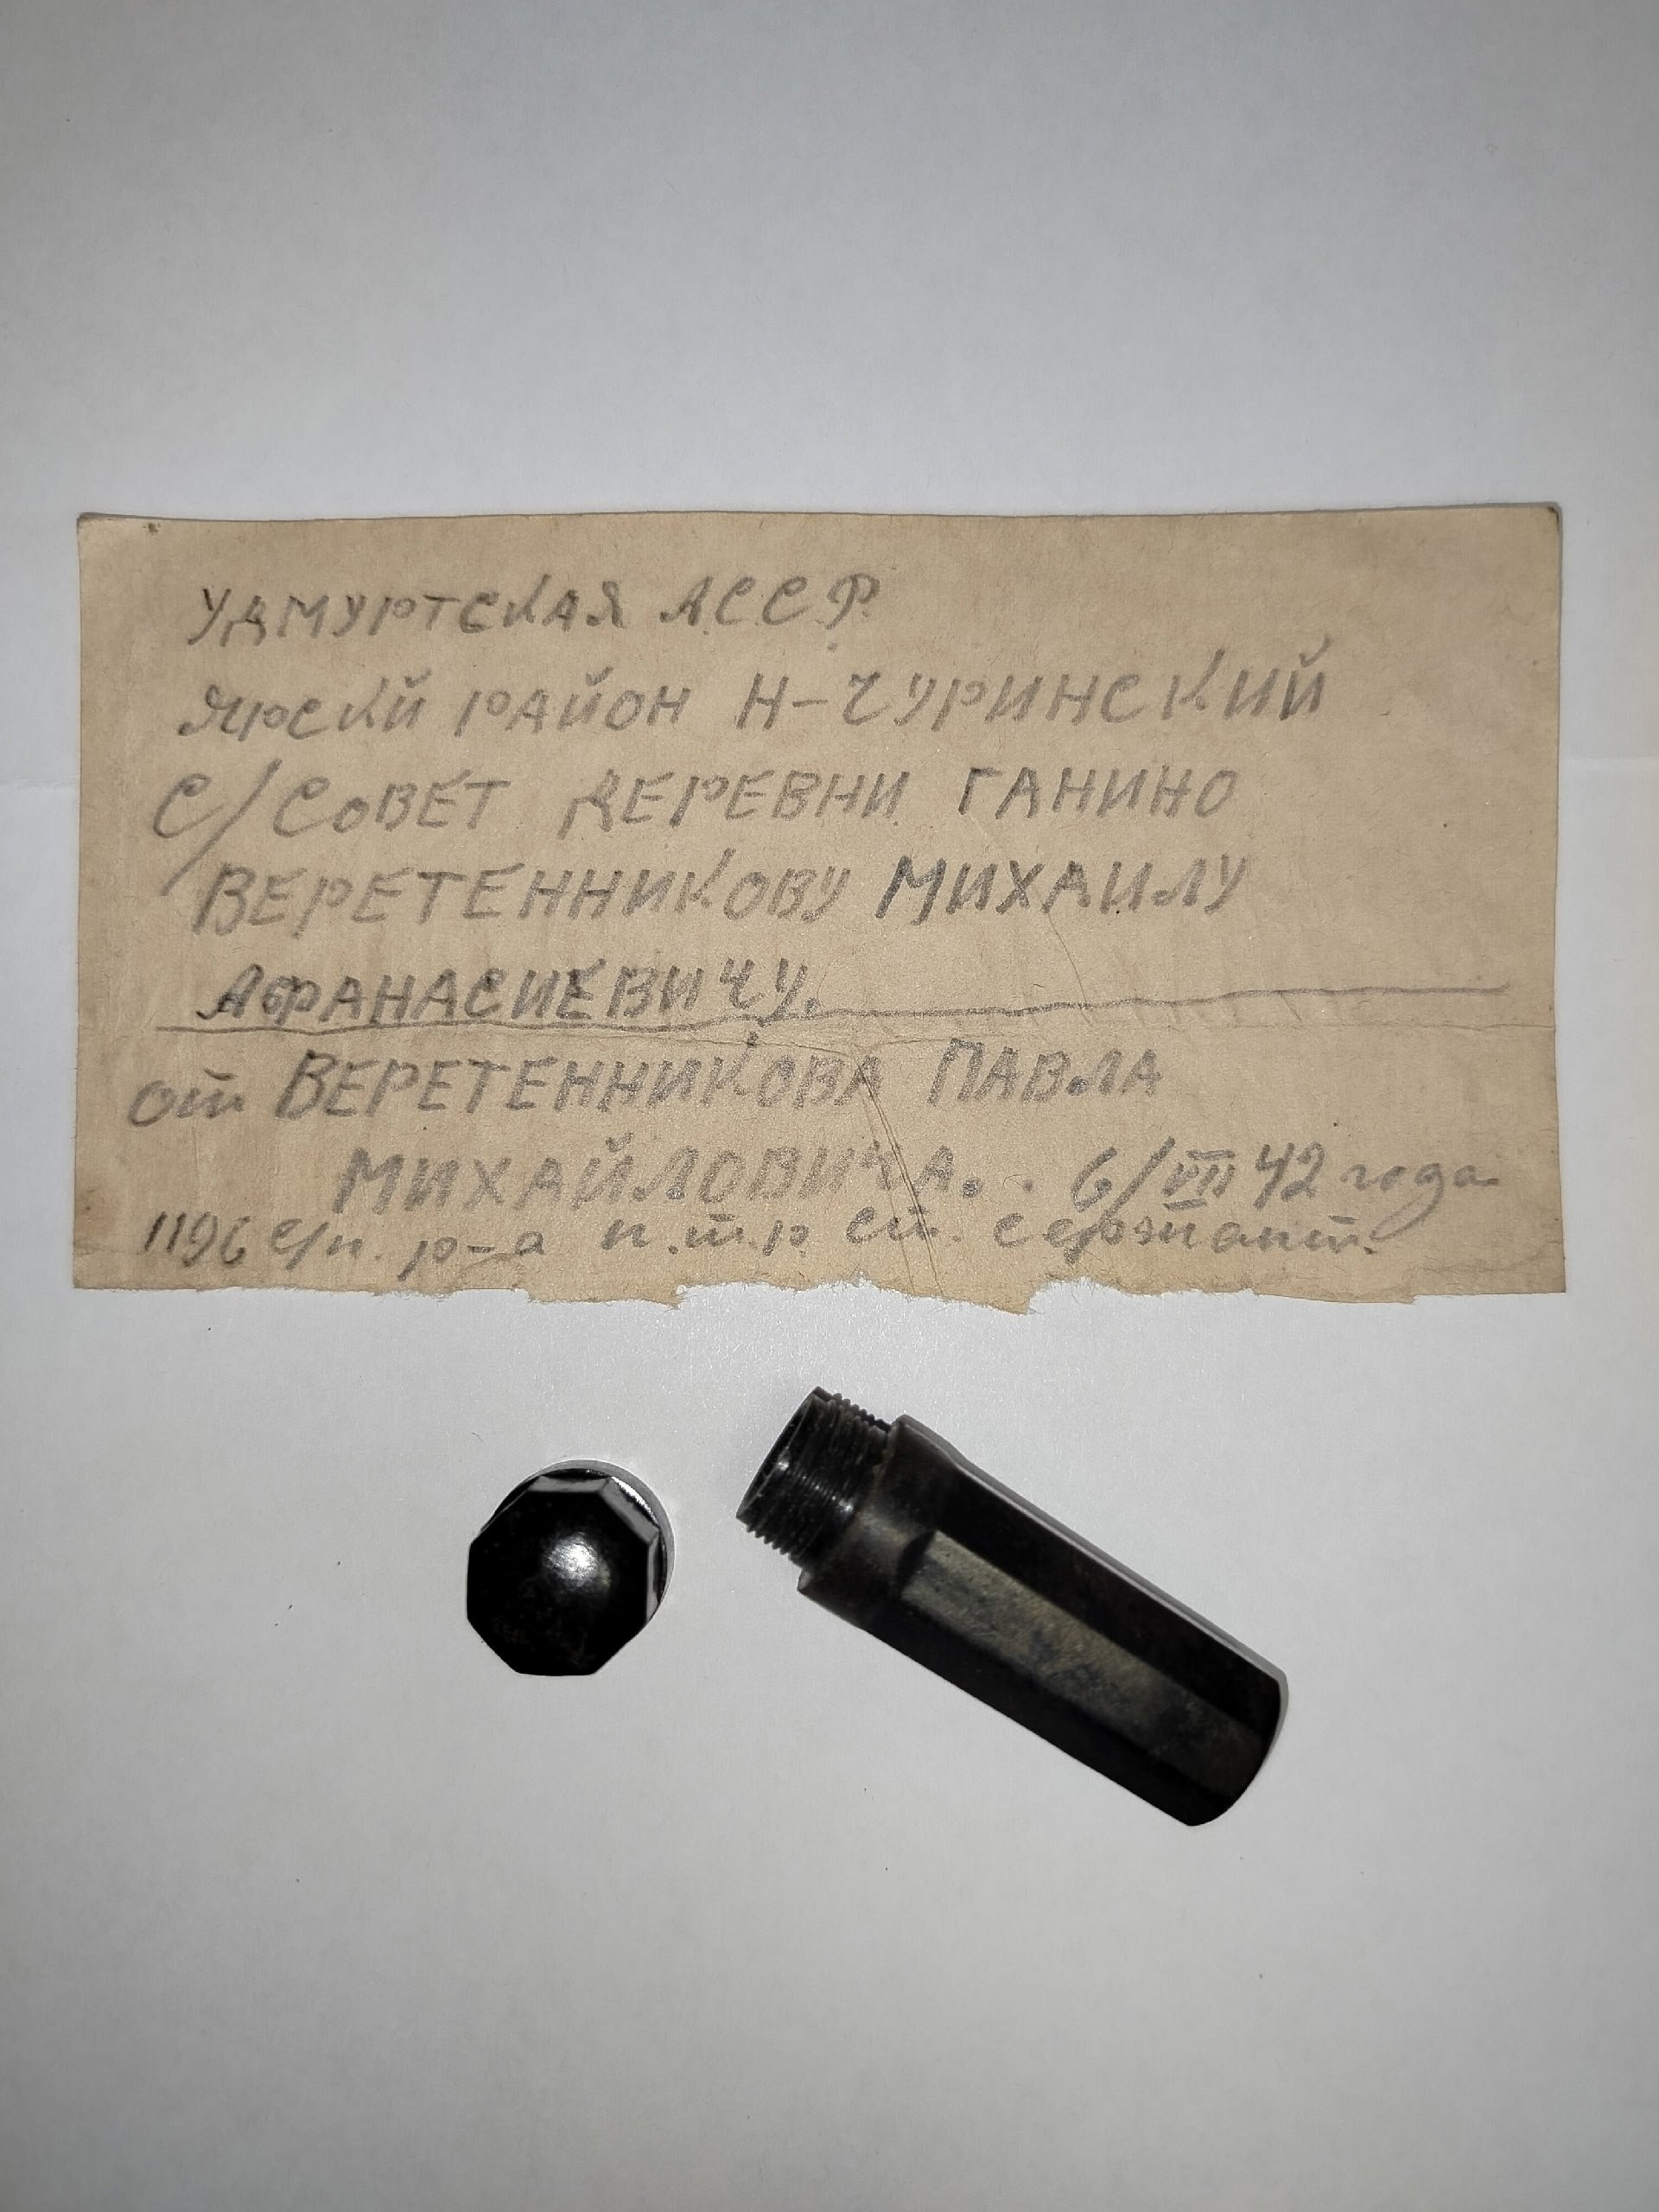 УДМУРТСКАЯ А.С.С.Р.
ЯРСКЙ РАЙОН Н-ЧУРИНСКИЙ
С/СОВЕТ ДЕРЕВНИ ГАНИНО
ВЕРЕТЕННИКОВУ МИХАИЛУ
АФАНАСИЕВИЧУ.
от ВЕРЕТЕННИКОВА ПАВЛА
МИХАЙЛОВИЧА. . 6/VII 42 года
1196 с/п. р-а п.т.р. ст. сержант.